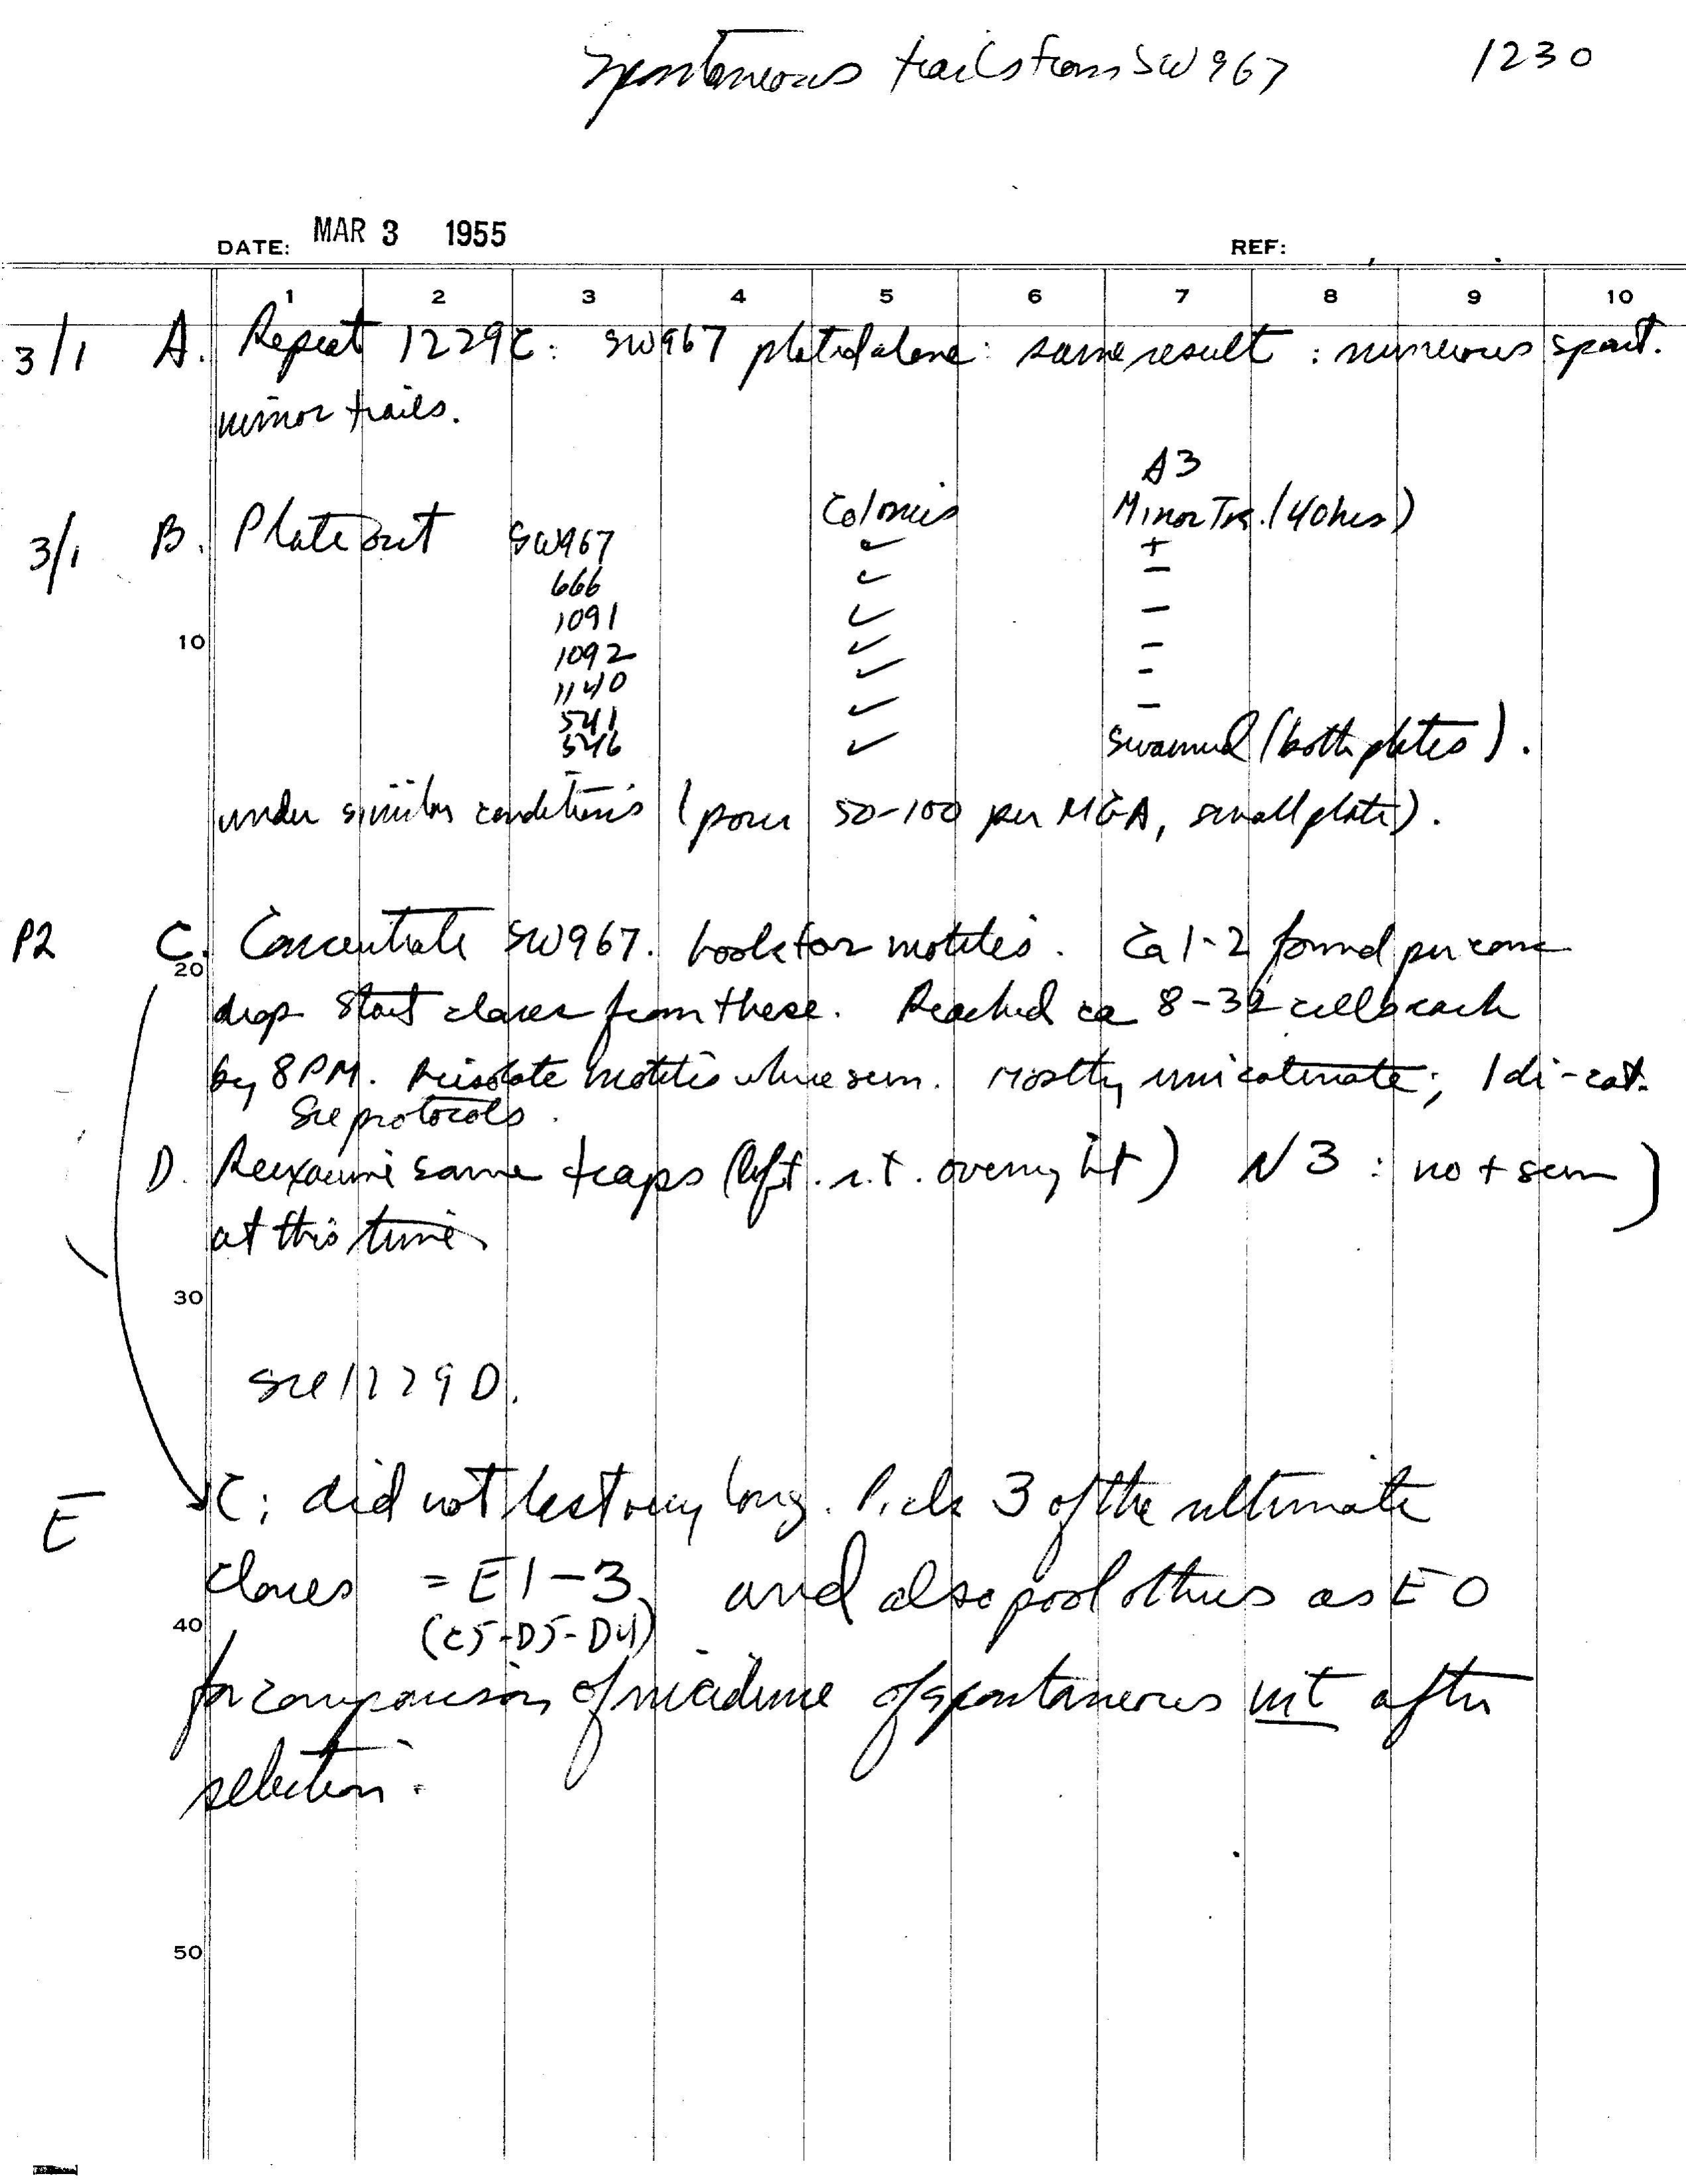 Spontaneous trails from SW967 1230
DATE: MAR 3 1955 REF:
1 2 3 4 5 6 7 8 9 10
3/1 A. Repeat 1229C: SW967 plated alone: same result: numerous spont.
minor trails.
A3
Colonies Minor Trs. (40 hrs)
3/1 B. Plate out SW967 ✓ +
666 ✓ –
1091 ✓ –
10 1092 ✓ –
1140 ✓ –
541 ✓ –
546 ✓ swarmed (both plates).
under similar conditions (pour 50-100 per MGA, small plate).
P2 C. Concentrate SW967. Look for motiles. Ca 1-2 found per conc
20
drop Start clones from these. Reached ca 8-32 cells each
by 8 PM. Reisolate motiles where seen. Mostly unicatenate; 1 di-cat.
See protocols.
D. Reexamine same traps (left r.t. overnight) N3: no + seen)
at this time
30
see 1229D.
E C: did not last very long. Pick 3 of the ultimate
clones = E1-3 and also pool others as E0
40 (C5-D5-D4)
for comparison of incidence of spontaneous mt after
selection.
50